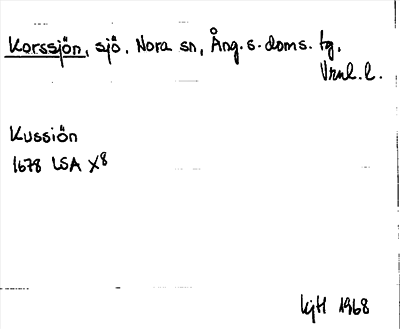 Korssjön, sjö, Nora sn, Ång. s. doms. tg,
Vrnl. l.
Kussiön
1678 LSA X8
KjH 1968